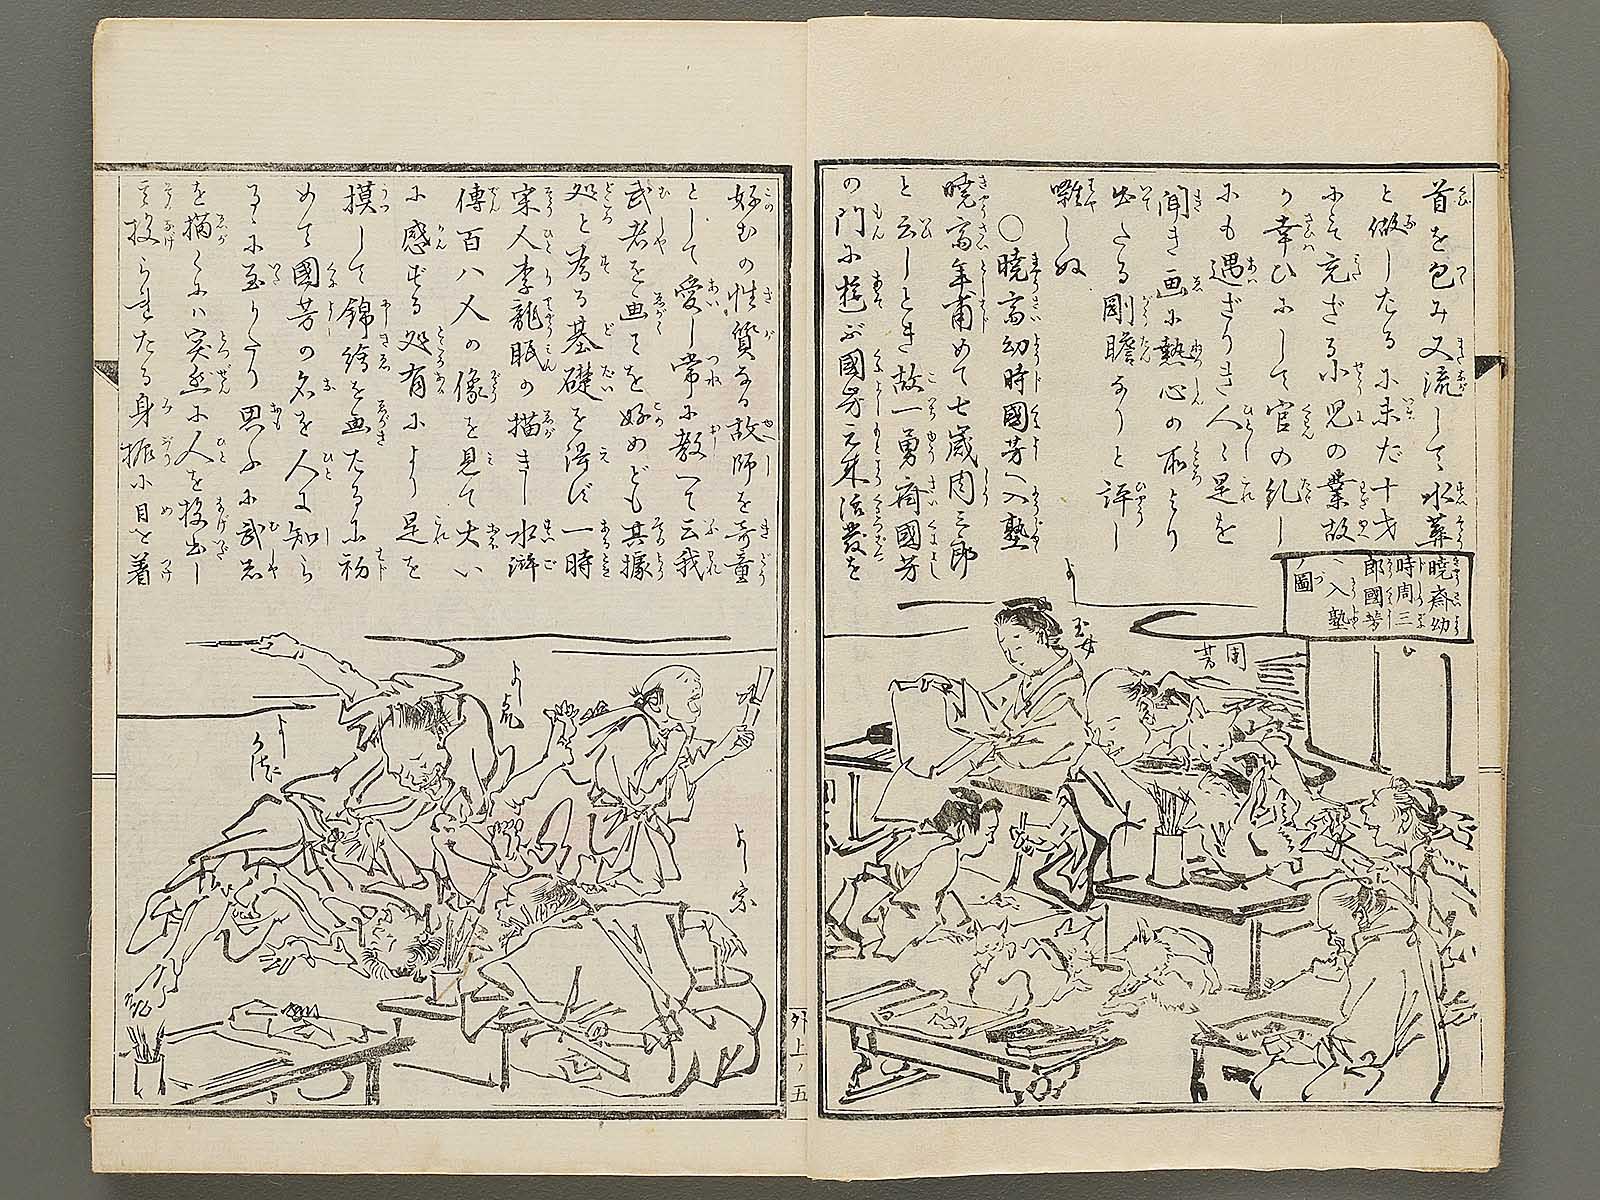 首を包み又流して水葬
と做したるに未だ十才
にも充ざる小児の業故
か幸ひにして官の糺し
にも遇ざりき人々是を
聞き画に熱心の所より
出たる剛膽なりと評し
囃しぬ
○暁斎幼時國芳へ入塾
暁斎年甫めて七歳周三郎
と云しとき故一勇斎國芳
の門に遊ぶ國芳元来活發を
暁斎幼
時周三
郎國芳
へ入塾
ノ圖
玉女
周
芳
好むの性質なる故師を奇童
として愛し常に教へて云我
武者を画をを好めども其據
処と為る基礎を得ず一時
宋人李龍眠の描きし水滸
傳百八人の像を見て大い
に感ずる処有により是を
摸して錦絵を画たるに初
めて國芳の名を人に知ら
るゝに至りたり思ふに武者
を描くには突然に人を投出し
又投られたる身振に目を着
よし虎
よし宗
外上ノ五